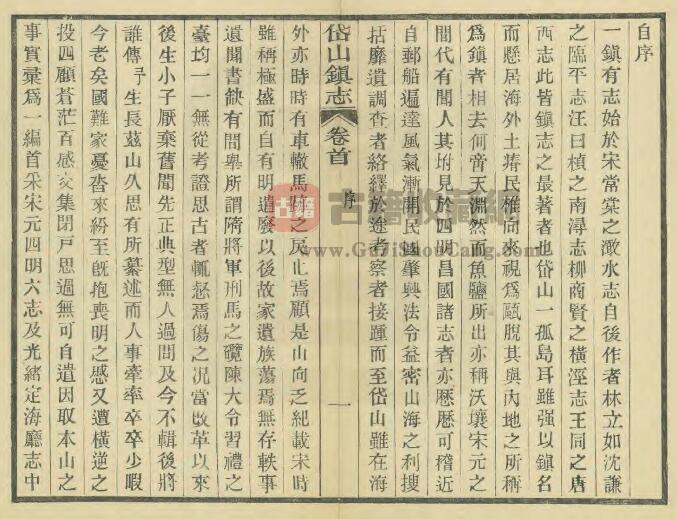 自序
一鎮有志始於宋常棠之澉水志自後作者林立如沈謙
之臨平志汪曰楨之南潯志柳商賢之橫涇志王同之唐
西志此皆鎮志之最著者也岱山一孤島耳雖强以鎮名
而懸居海外土瘠民樵向來視爲甌脫其與內地之所稱
爲鎮者相去何啻天淵然而魚鹽所出亦稱沃壤宋元之
間代有聞人其坿見於四明昌國諸志者亦歷歷可稽近
自郵船遄達風氣漸開民國肇興法令益密山海之利搜
括靡遺調查者絡繹於途考察者接踵而至岱山雖在海
岱山鎮志
卷首
序
一
外亦時時有車轍馬跡之民止焉顧是山向乏紀載宋時
雖稱極盛而自有明遣廢以後故家遺族蕩焉無存軼事
遺聞書缺有間舉所謂隋將軍刑馬之䃹陳大令習禮之
臺均一一無從考證思古者輒惄焉傷之况當改革以來
後生小子厭棄舊聞先正典型無人過問及今不輯後將
誰傳予生長茲山久思有所纂述而人事牽率卒卒少暇
今老矣國難家憂沓來紛至旣抱喪明之感又遭橫逆之
投四顧蒼茫百感交集閉戶思過無可自遣因取本山之
事實彙爲一編首采宋元四明六志及光緒定海廳志中
古籍收藏网
www.GuJiShouCang.com
古籍